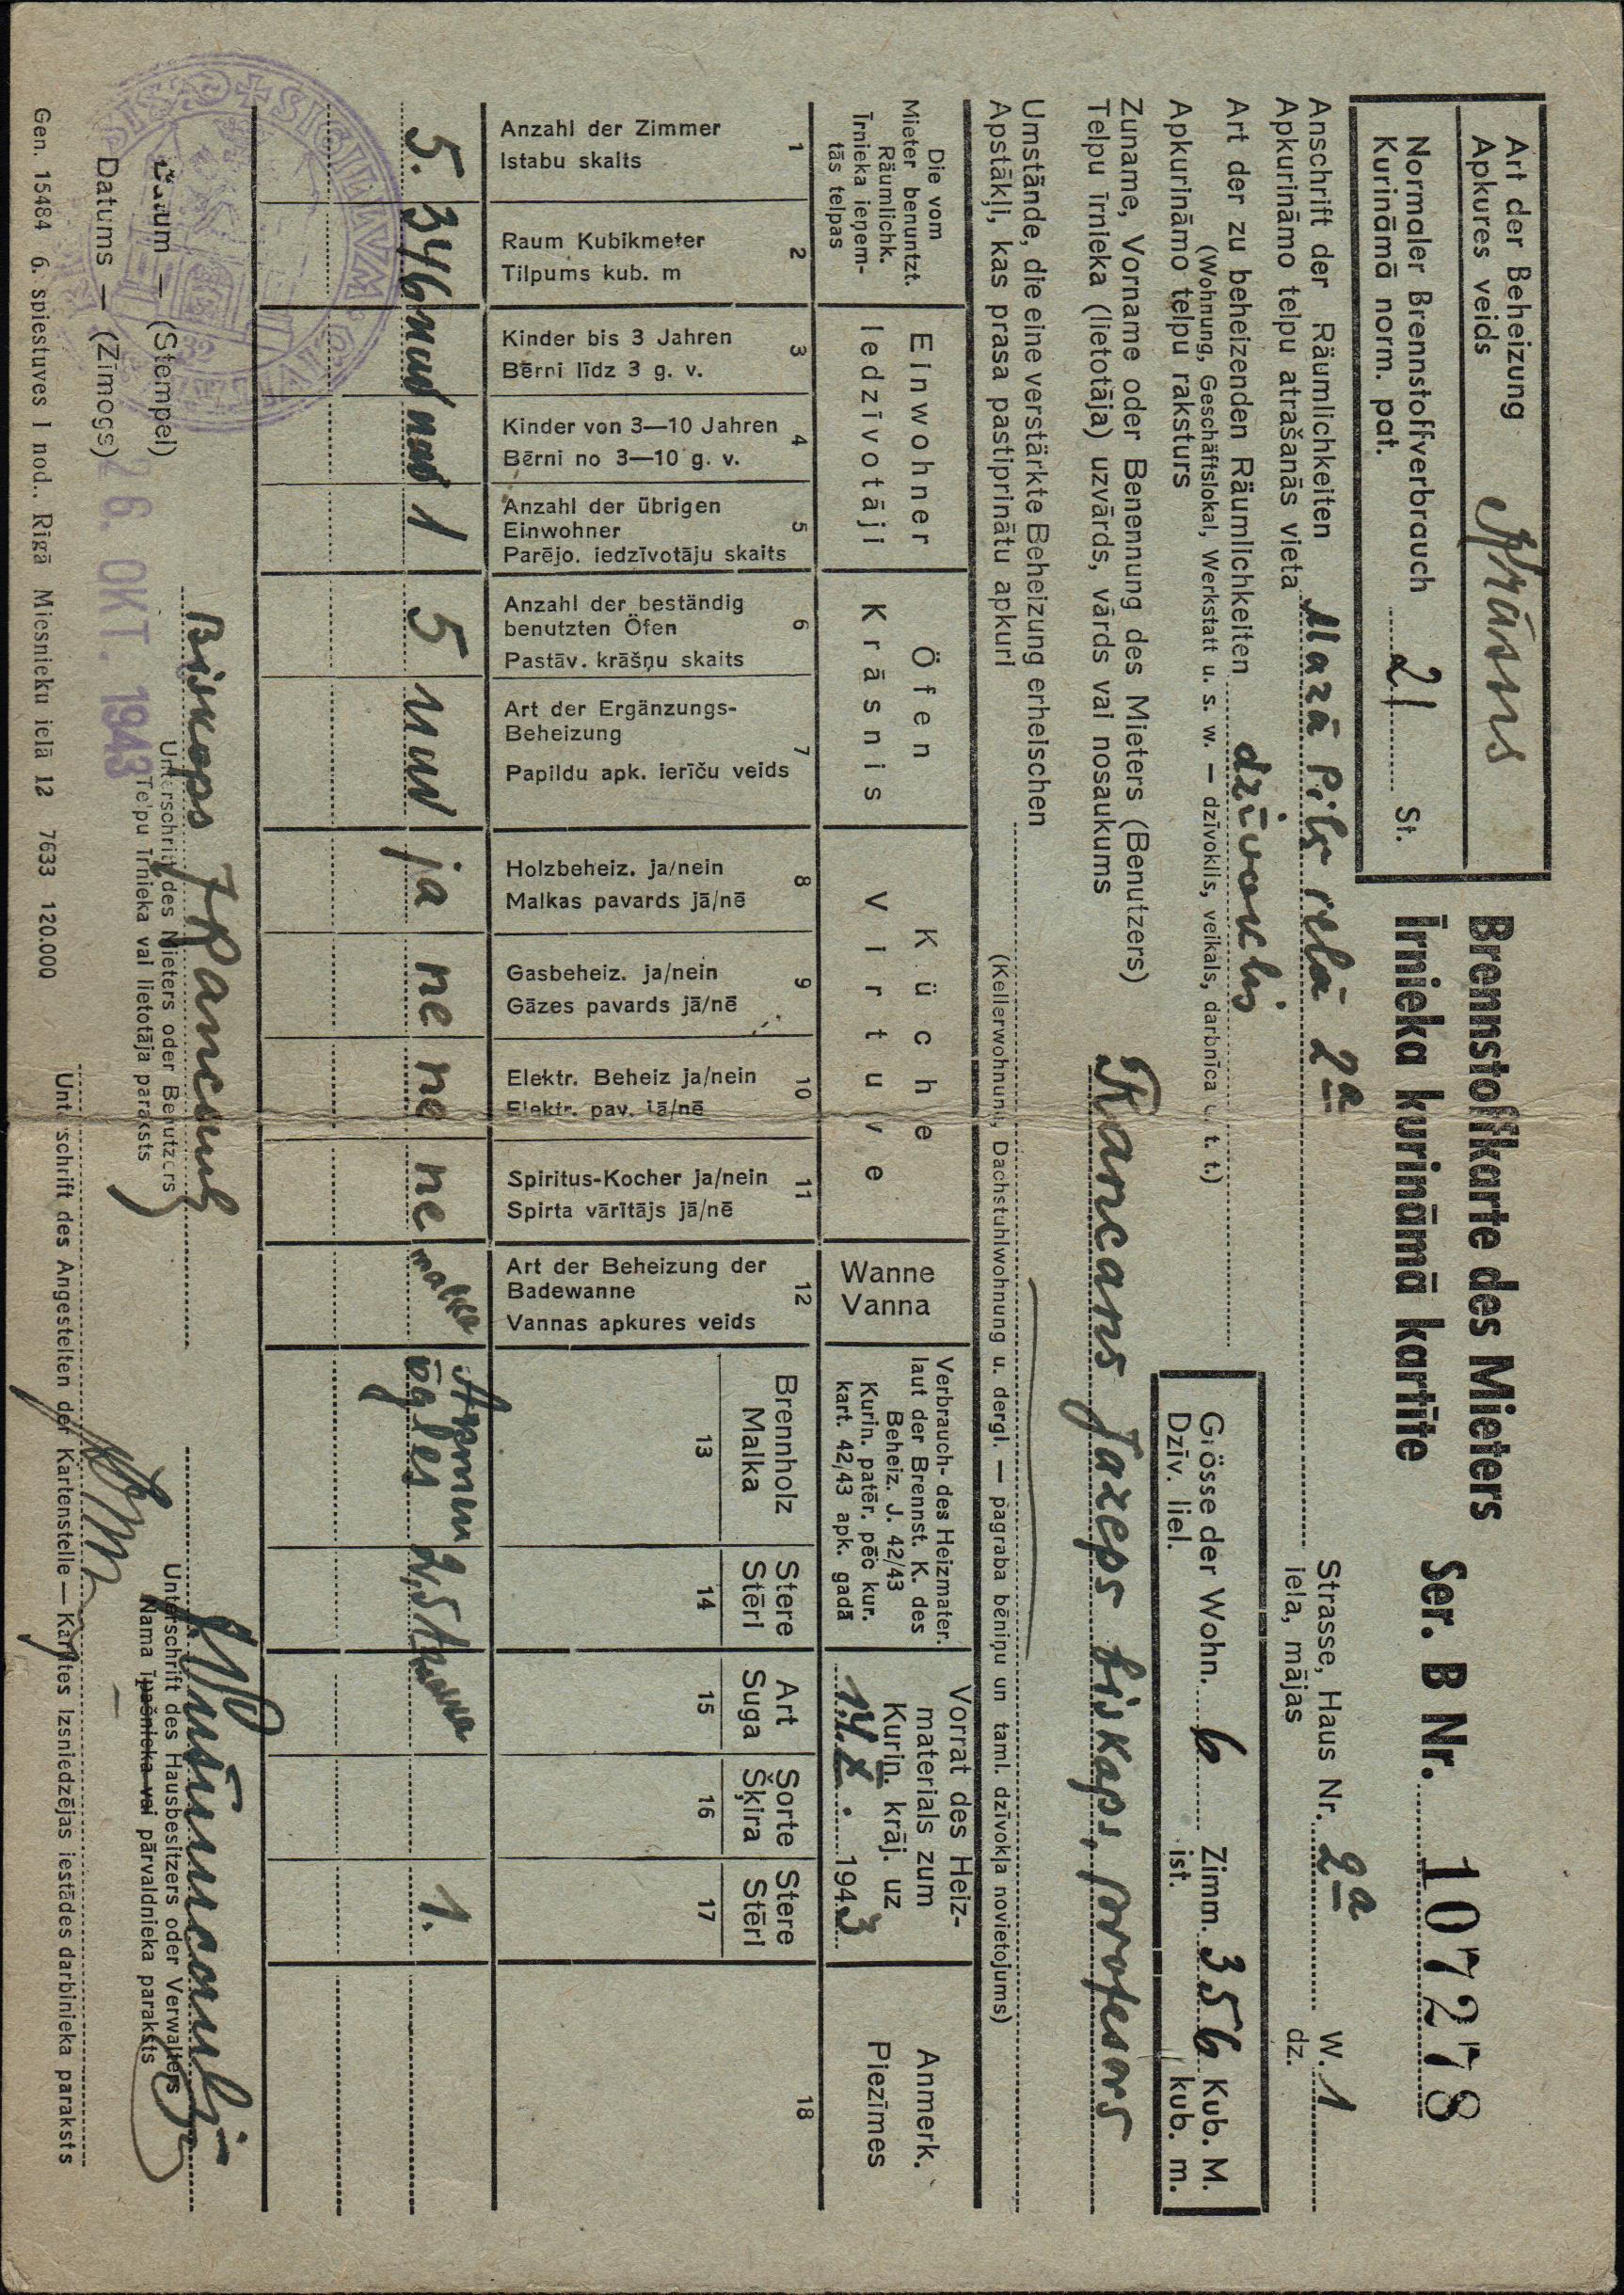 Art der Beheizung
Apkures veids Krāsns
Normaler Brennstoffverbrauch
Kurināmā norm. pat. 21 St.
Brennstoffkarte des Mieters
Īrnieka kurināmā kartīte
Ser. B Nr. 107278
Anschrift der Räumlichkeiten
Apkurināmo telpu atrašanās vieta Mazā Pils ielā 2a
Strasse, Haus Nr. 2a W. 1
iela, mājas dz.
Art der zu beheizenden Räumlichkeiten dzīvoklis
(Wohnung, Geschäftslokal, Werkstatt u. s. w. — dzīvoklis, veikals, darbnīca u. t. t.)
Apkurināmo telpu raksturs
Grösse der Wohn. 6 Zimm. 356 Kub. M.
Dzīv. liel. ist. kub. m.
Zuname, Vorname oder Benennung des Mieters (Benutzers)
Telpu īrnieka (lietotāja) uzvārds, vārds vai nosaukums Rancans Jazeps biskaps, profesors
Umstände, die eine verstärkte Beheizung erheischen
Apstākļi, kas prasa pastiprinātu apkuri
(Kellerwohnung, Dachstuhlwohnung u. dergl. — pagraba bēniņu un taml. dzīvokļa novietojums)
Die vom
Mieter benuntzt.
Räumlichk.
Īrnieka ieņem-
tās telpas
Einwohner
Iedzīvotāji
Öfen
Krāsnis
Küche
Virtuve
Wanne
Vanna
Verbrauch- des Heizmater.
laut der Brennst. K. des
Beheiz. J. 42/43
Kurin. patēr. pēc kur.
kart. 42/43 apk. gadā
Vorrat des Heiz-
materials zum
Kurin. krāj. uz
1943
Anmerk.
Piezīmes
1
Anzahl der Zimmer
Istabu skaits
2
Raum Kubikmeter
Tilpums kub. m
3
Kinder bis 3 Jahren
Bērni līdz 3 g. v.
4
Kinder von 3—10 Jahren
Bērni no 3—10 g. v.
5
Anzahl der übrigen
Einwohner
Parējo. iedzīvotāju skaits
6
Anzahl der beständig
benutzten Öfen
Pastāv. krāšņu skaits
7
Art der Ergänzungs-
Beheizung
Papildu apk. ierīču veids
8
Holzbeheiz. ja/nein
Malkas pavards jā/nē
9
Gasbeheiz. ja/nein
Gāzes pavards jā/nē
10
Elektr. Beheiz ja/nein
Elektr. pav. jā/nē
11
Spiritus-Kocher ja/nein
Spirta vārītājs jā/nē
12
Art der Beheizung der
Badewanne
Vannas apkures veids
Brennholz
Malka
13
Stere
Stēri
14
Art
Suga
15
Sorte
Šķira
16
Stere
Stēri
17
18
5. 346 nav nav 1 5 nav ja ne ne ne malka
ogles 1.
Biskaps JRancans
Unterschrift des Mieters oder Benutzers
Telpu īrnieka vai lietotāja paraksts
Unterschrift des Hausbesitzers oder Verwalters
Nama īpašnieka vai pārvaldnieka paraksts
Datum — (Stempel)
Datums — (Zīmogs)
26. OKT. 1943
Unterschrift des Angestelten der Kartenstelle — Kartītes izsniedzējas iestādes darbinieka paraksts
Gen. 15484 6. spiestuves I nod., Rīgā Miesnieku ielā 12 7633 120.000